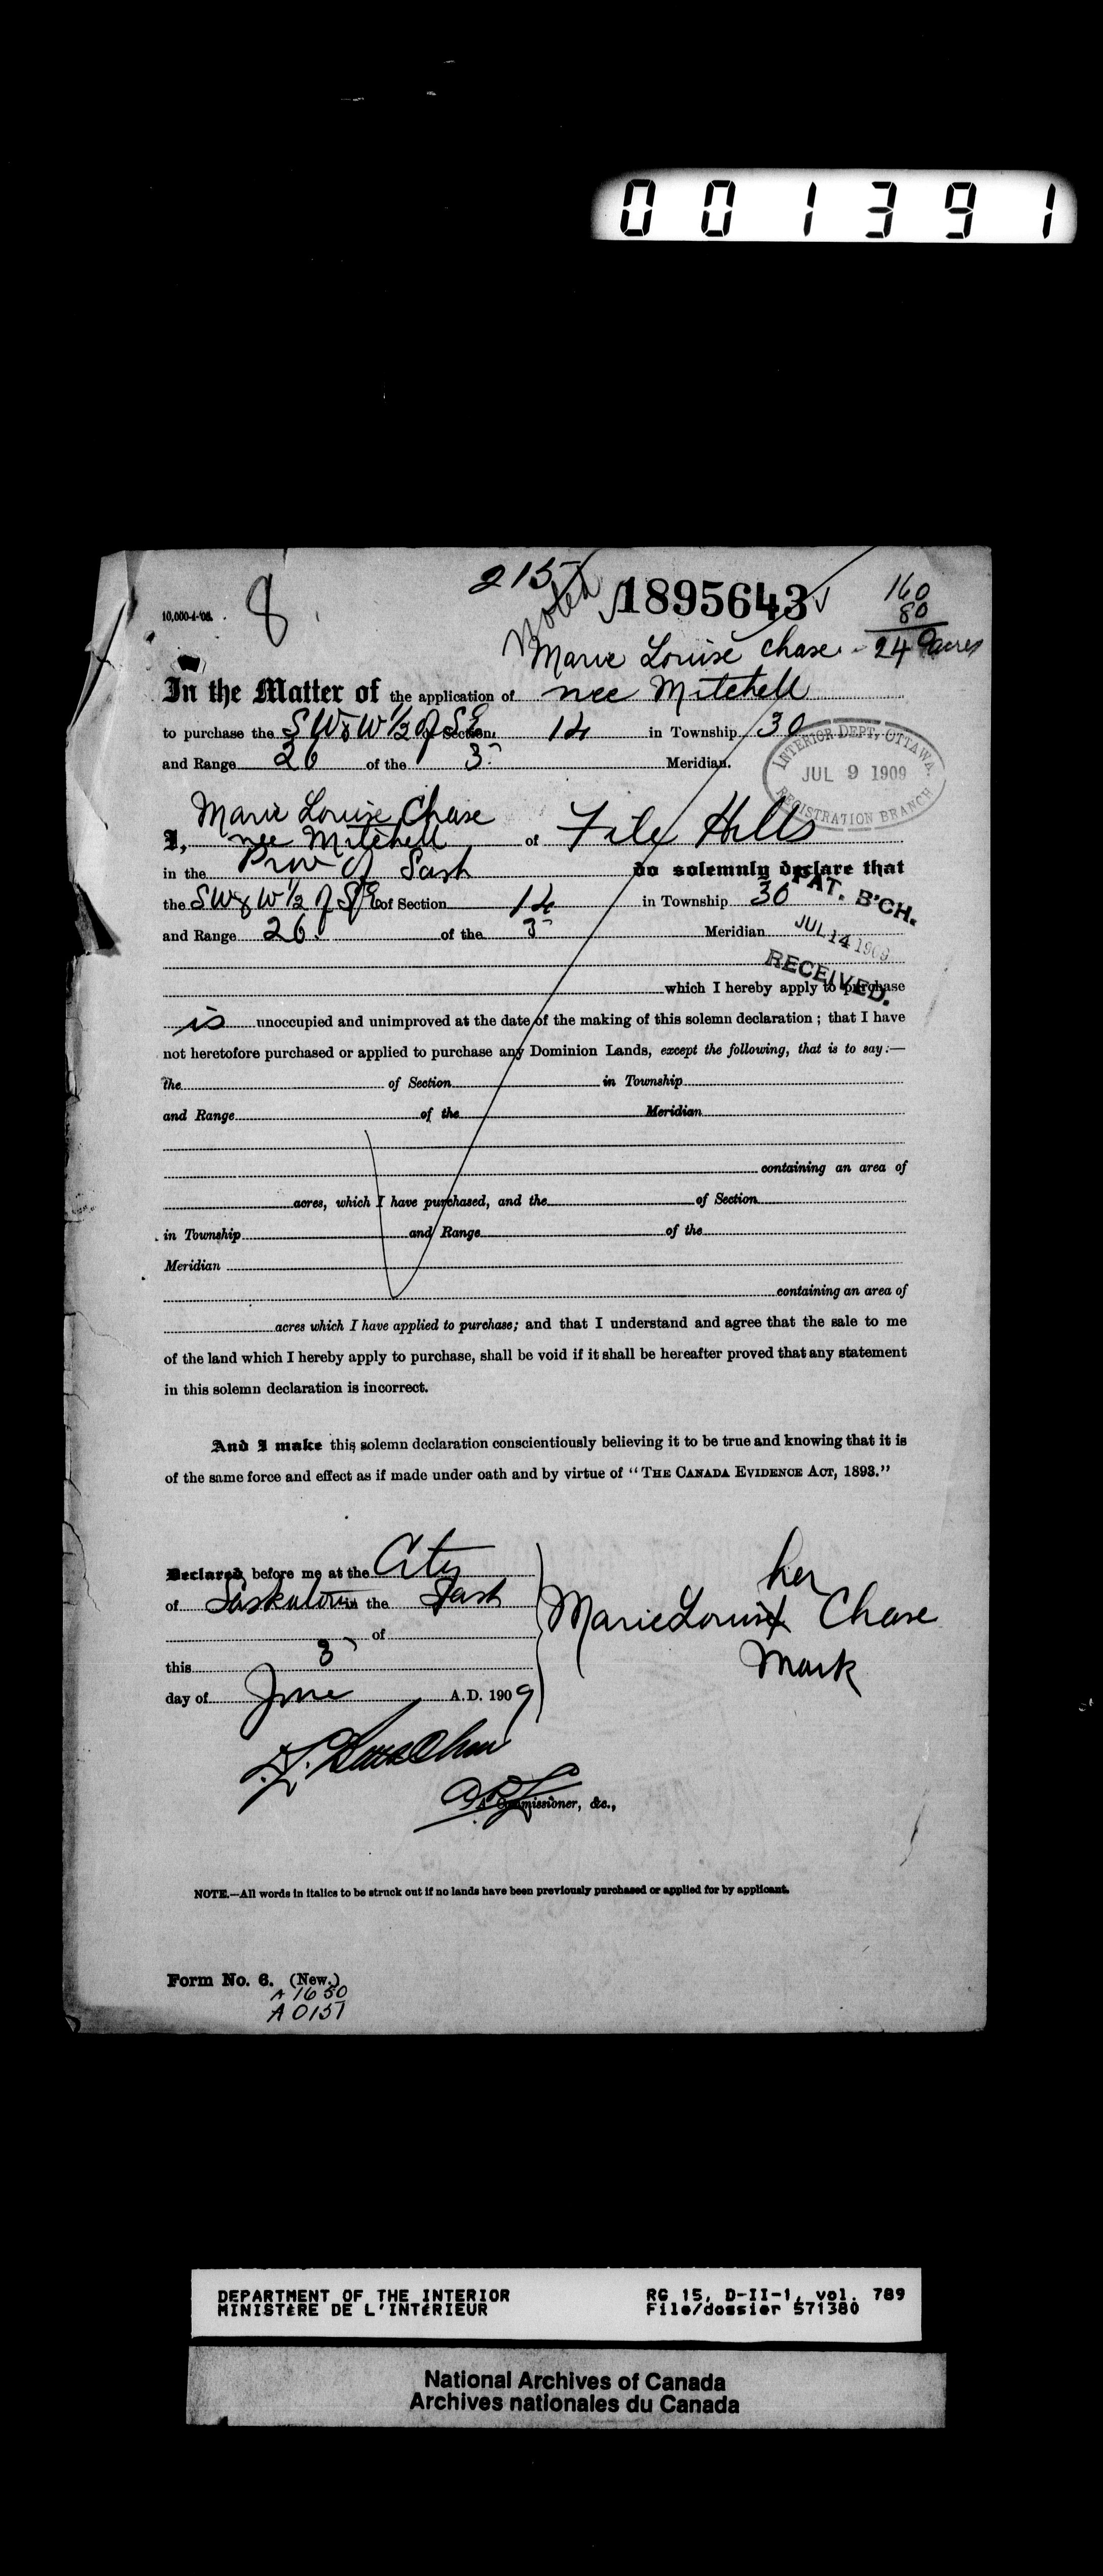 001391
215
Noted
1895643
160
80
240 acres
10,000-4-'08.
8
Marie Louise Chase
In the Matter of the application of nee Mitchell
to purchase the SW & W 1/2 of SE of Section 14 in Township 30
and Range 26 of the 3 Meridian.
INTERIOR DEPT, OTTAWA.
JUL 9 1909
REGISTRATION BRANCH
Marie Louise Chase
I, nee Mitchell of File Hills
in the Prov of Sask do solemnly declare that
the SW & W 1/2 of SE of Section 14 in Township 30
and Range 26 of the 3 Meridian
PAT. B'CH.
JUL 14 1909
RECEIVED.
which I hereby apply to purchase
is unoccupied and unimproved at the date of the making of this solemn declaration; that I have
not heretofore purchased or applied to purchase any Dominion Lands, except the following, that is to say:—
the of Section in Township
and Range of the Meridian
containing an area of
acres, which I have purchased, and the of Section
in Township and Range of the
Meridian
containing an area of
acres which I have applied to purchase; and that I understand and agree that the sale to me
of the land which I hereby apply to purchase, shall be void if it shall be hereafter proved that any statement
in this solemn declaration is incorrect.
And I make this solemn declaration conscientiously believing it to be true and knowing that it is
of the same force and effect as if made under oath and by virtue of "THE CANADA EVIDENCE ACT, 1893."
Declared before me at the City
of Saskatoon in the Sask
of
this 3
day of June A.D. 1909
her
Marie Louise X Chase
Mark
A Commissioner, &c.,
NOTE.—All words in italics to be struck out if no lands have been previously purchased or applied for by applicant.
Form No. 6. (New.)
A 1650
A 0151
DEPARTMENT OF THE INTERIOR
MINISTÈRE DE L'INTÉRIEUR
RG 15, D-II-1, vol. 789
File/dossier 571380
National Archives of Canada
Archives nationales du Canada